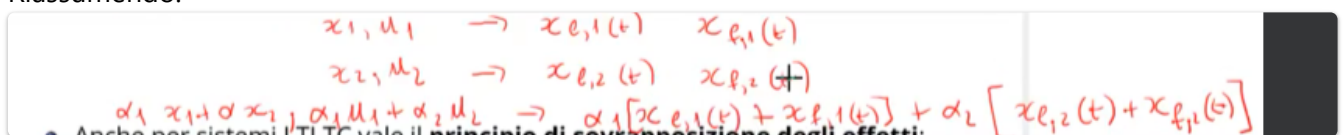 Riassumendo:
x1, u1 → x ℓ,1(t) x f,1(t)
x2, u2 → x ℓ,2 (t) x f,2 (t)
α1 x1 + α x2, α1 u1 + α2 u2 → α1[x ℓ,1(t) + x f,1(t)] + α2 [x ℓ,2(t) + x f,2(t)]
• Anche per sistemi LTI TC vale il principio di sovrapposizione degli effetti: